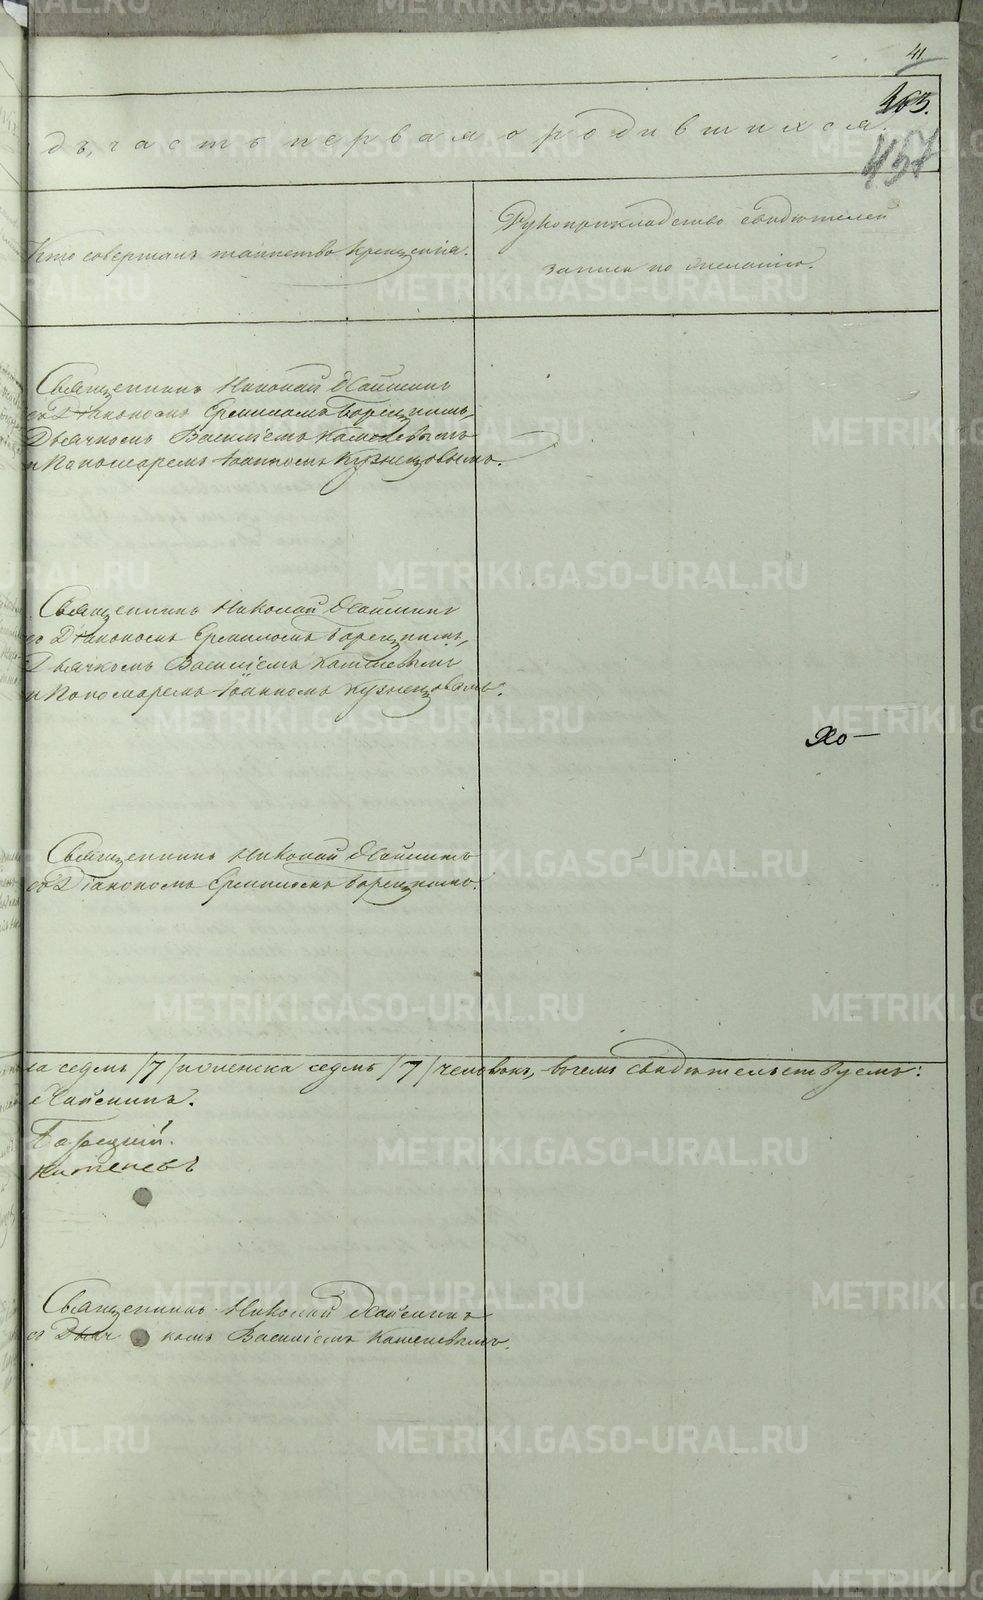 41
263.
457
дъ, часть первая о родившихся.
Кто совершалъ таинство крещенія.
Рукоприкладство свидѣтелей
записи по желанію.
Священникъ Николай
съ Діакономъ Ермиломъ Борецкимъ,
Дьячкомъ Василіемъ Каменевымъ
и Пономаремъ Іоанномъ Кузнецовымъ.
Священникъ Николай
съ Діакономъ Ермиломъ Борецкимъ,
Дьячкомъ Василіемъ
и Пономаремъ Іоанномъ Кузнецовымъ.
Хо—
Священникъ Николай
съ Діакономъ Ермиломъ Борецкимъ.
ка седмь /7/ и женска седмь /7/ человѣкъ, въ чемъ свидѣтельствуемъ:
Борецкій.
Священникъ Николай
съ Дьячкомъ Василіемъ Каменевымъ.
METRIKI.GASO-URAL.RU